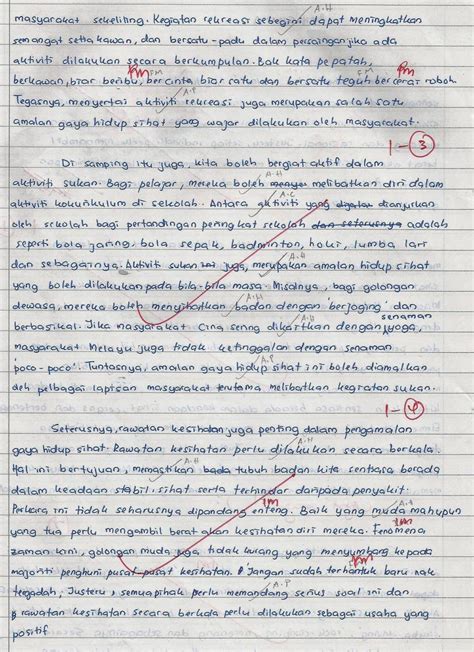 masyarakat sekeliling. Kegiatan rekreasi sebegini dapat meningkatkan
semangat setia kawan, dan bersatu-padu dalam persaingan jika ada
aktiviti dilakukan secara berkumpulan. Bak kata pepatah,
berkawan biar beribu, bercinta biar satu dan bersatu teguh bercerai roboh.
Tegasnya, menyertai aktiviti rekreasi juga merupakan salah satu
amalan gaya hidup sihat yang wajar dilakukan oleh masyarakat.
1-3
Di samping itu juga, kita boleh bergiat aktif dalam
aktiviti sukan. Bagi pelajar, mereka boleh melibatkan diri dalam
aktiviti kokurikulum di sekolah. Antara aktiviti yang dianjurkan
oleh sekolah bagi pertandingan peringkat sekolah dan seterusnya adalah
seperti bola jaring, bola sepak, badminton, hoki, lumba lari
dan sebagainya. Aktiviti sukan ini juga, merupakan amalan hidup sihat
yang boleh dilakukan pada bila-bila masa. Misalnya, bagi golongan
dewasa, mereka boleh menyihatkan badan dengan 'berjoging' dan
senaman
berbasikal. Jika masyarakat Cina sering dikaitkan dengan yoga,
masyarakat Melayu juga tidak ketinggalan dengan senaman
'poco-poco'. Tuntasnya, amalan gaya hidup sihat ini boleh diamalkan
oleh pelbagai lapisan masyarakat terutama melibatkan kegiatan sukan.
1-4
Seterusnya, rawatan kesihatan juga penting dalam pengamalan
gaya hidup sihat. Rawatan kesihatan perlu dilakukan secara berkala.
Hal ini bertujuan, memastikan bada tubuh badan kita sentiasa berada
dalam keadaan stabil, sihat serta terhindar daripada penyakit.
Perkara ini tidak seharusnya dipandang enteng. Baik yang muda mahupun
yang tua perlu mengambil berat akan kesihatan diri mereka. Fenomena
zaman kini, golongan muda juga tidak kurang yang menyumbang kepada
majoriti penghuni pusat-pusat kesihatan. Jangan sudah terhantuk baru nak
tengadah, Justeru, semua pihak perlu memandang serius soal ini dan
rawatan kesihatan secara berkala perlu dilakukan sebagai usaha yang
positif